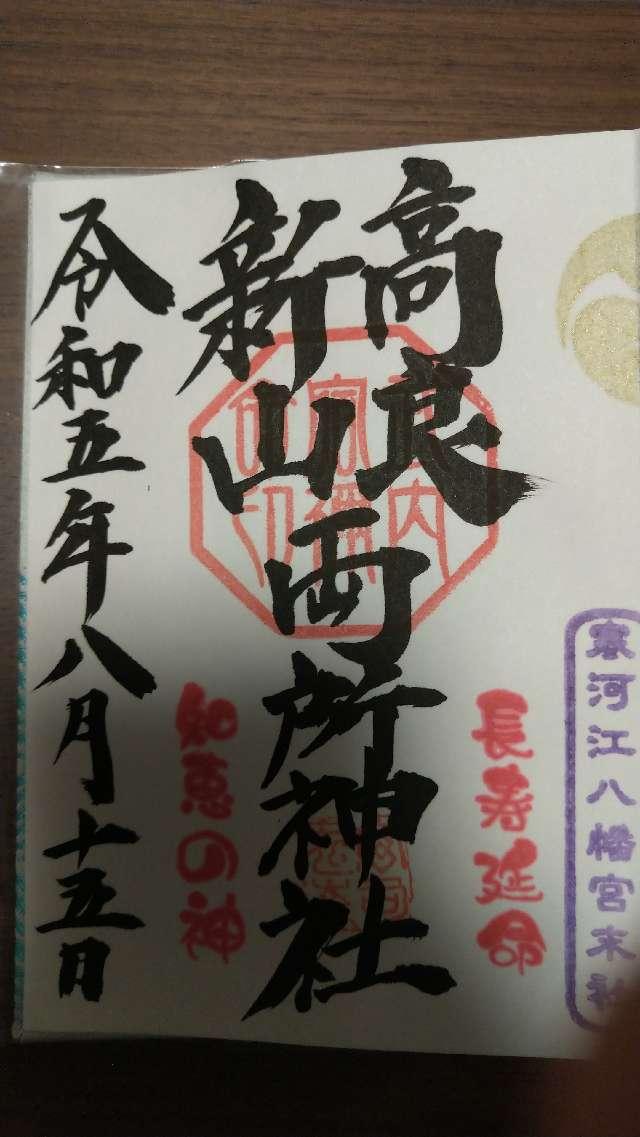 寒河江八幡宮末社
長寿延命
高良
新山
両所神社
知恵の神
令和五年八月十五日